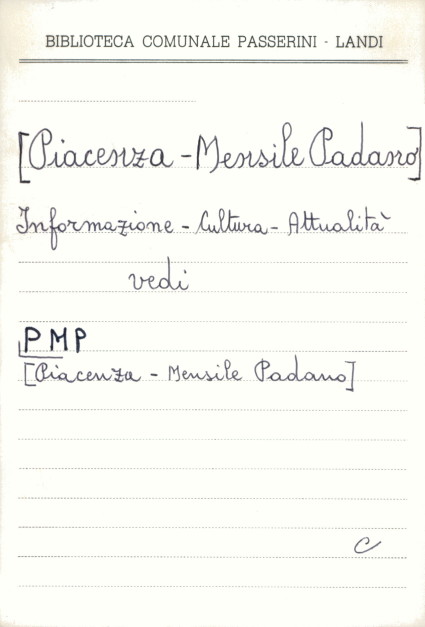 BIBLIOTECA COMUNALE PASSERINI - LANDI
[Piacenza - Mensile Padano]
Informazione - Cultura - Attualità
vedi
PMP
[Piacenza - Mensile Padano]
C